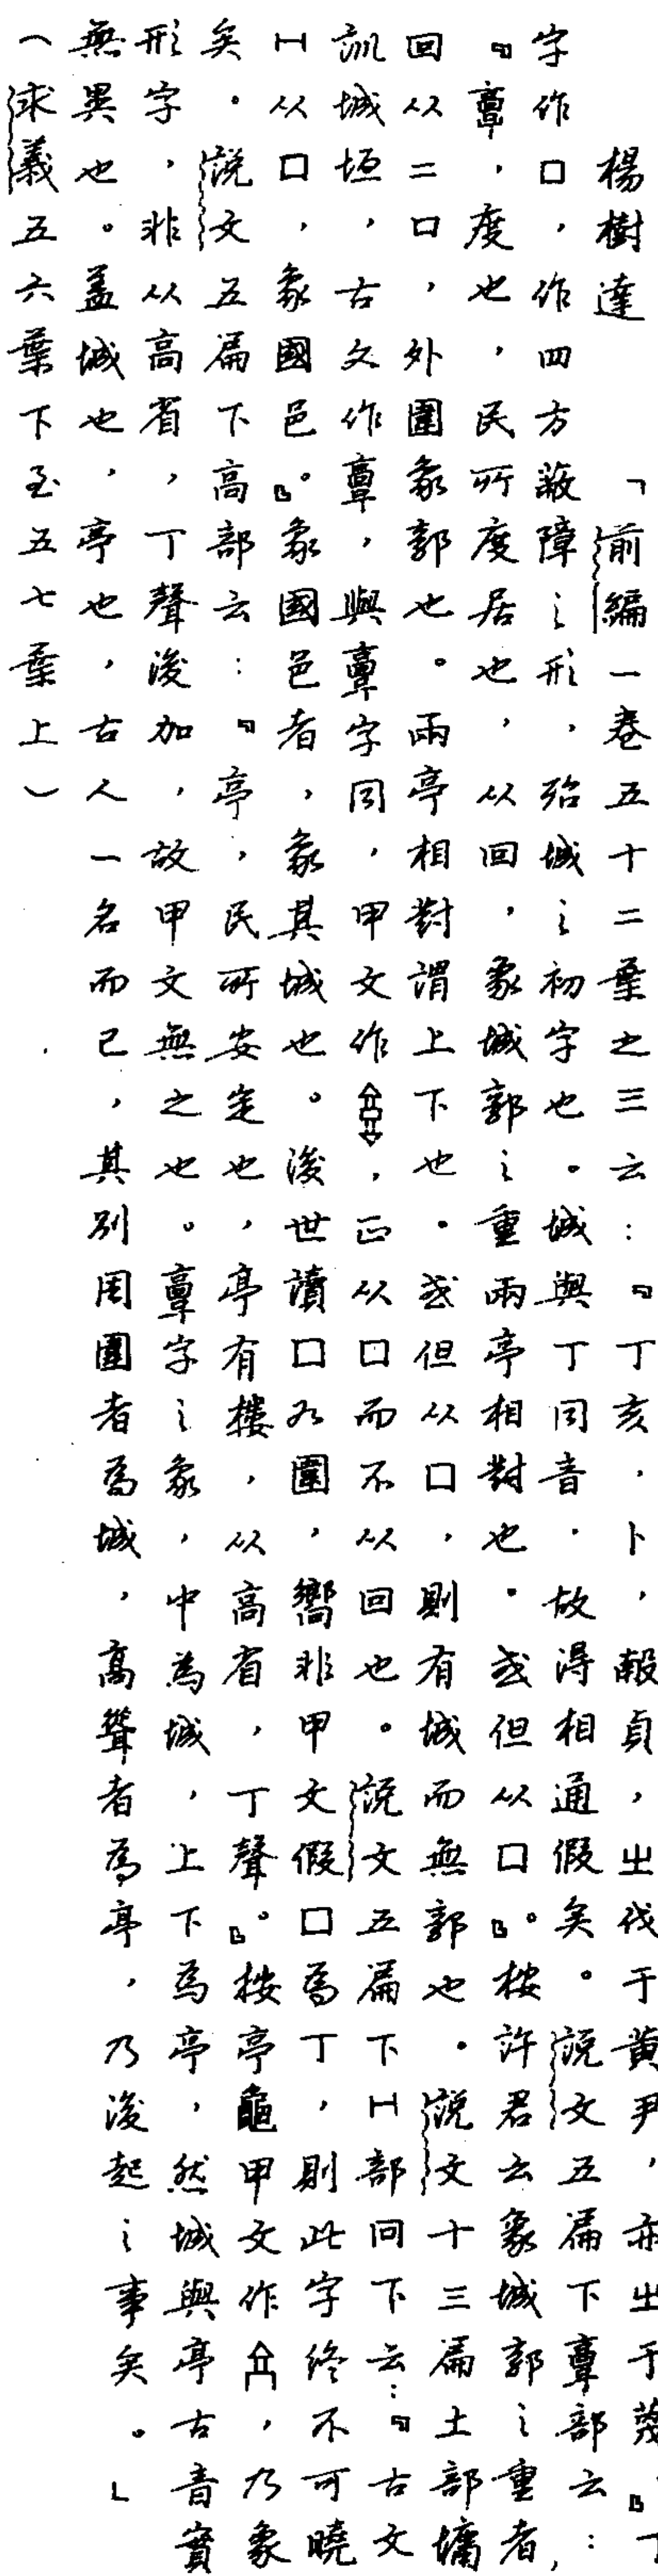 楊樹達　「前編一卷五十二葉之三云：『丁亥，卜，㱿貞，㞢伐于黃尹，亦㞢于蔑』。丁
字作口，作四方蔽障之形，殆城之初字也。城與丁同音，故得相通假矣。說文五篇下𩫖部云：
『𩫖，度也，民所度居也，从回，象城郭之重兩亭相對也。或但从口』。按許君云象城郭之重者，
回从二口，外圍象郭也。兩亭相對謂上下也。或但从口，則有城而無郭也。說文十三篇土部墉
訓城垣，古文作𩫖，與𩫖字同，甲文作，正从口而不从回也。說文五篇下冂部冋下云：『古文
冂从口，象國邑』。象國邑者，象其城也。後世讀口如圍，嚮非甲文假口為丁，則此字終不可曉
矣。說文五篇下高部云：『亭，民所安定也，亭有樓，从高省，丁聲』。按亭龜甲文作，乃象
形字，非从高省，丁聲後加，故甲文無之也。𩫖字之象，中為城，上下為亭，然城與亭古音實
無異也。蓋城也，亭也，古人一名而已，其別周圍者為城，高聳者為亭，乃後起之事矣。」
（求義五六葉下至五七葉上）